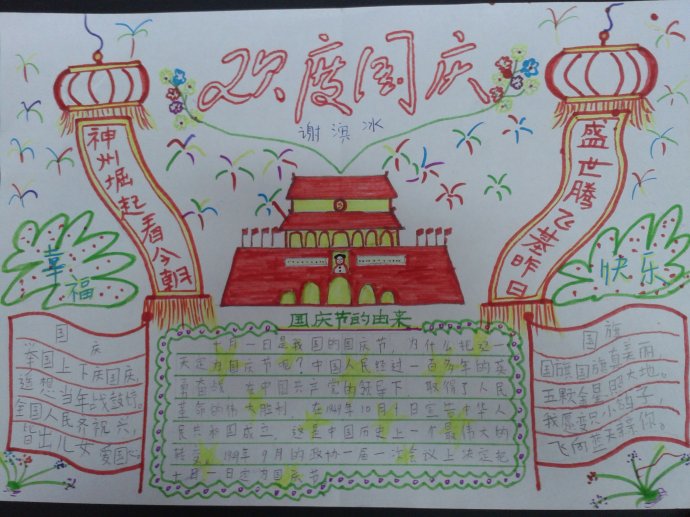 欢度国庆
谢滨冰
神州崛起看今朝
盛世腾飞基昨日
幸福
快乐
国庆节的由来
十月一日是我国的国庆节，为什么把这一
天定为国庆节呢？中国人民经过一百多年的英
勇奋战，在中国共产党的领导下，取得了人民
革命的伟大胜利，在1949年10月1日宣告中华人
民共和国成立，这是中国历史上一个最伟大的
转变，1949年9月的政协一届一次会议上决定把
十月一日定为国庆节
国庆
举国上下庆国庆，
遥想当年战鼓
全国人民齐祝兴，
皆出儿女爱国
国旗
国旗国旗真美丽，
五颗金星照大地。
我愿变只小鸽子，
飞向蓝天